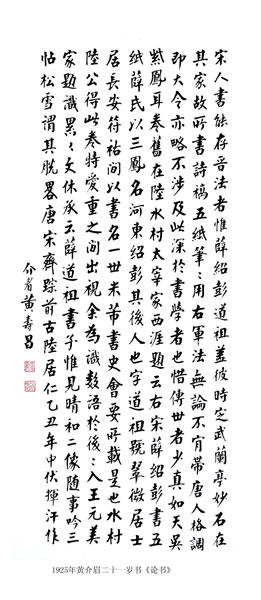 宋人書能存晉法者惟薛紹彭道祖蓋彼時定武蘭亭妙石在
其家故所書詩稿五紙筆〻用右軍法無論不肎帶唐人格調
即大令亦略不涉及此深於書學者也惜傳世者少真如天吳
紫鳳耳卷舊在陸水村太宰家西涯題云右宋薛紹彭書五
紙薛氏以三鳳名河東紹彭其後人也字道祖號翠微居士
居長安符祐間以書名一世米芾書史會要所載是也水村
陸公得此卷特愛重之間出視余為識數語於後〻入王元美
家題識累〻文休承云薛道祖書予惟見晴和二像隨事吟三
帖松雪謂其脫略唐宋齊踪前古陸居仁乙丑年中伏揮汗作
介眉黃壽昌
1925年黄介眉二十一岁书《论书》